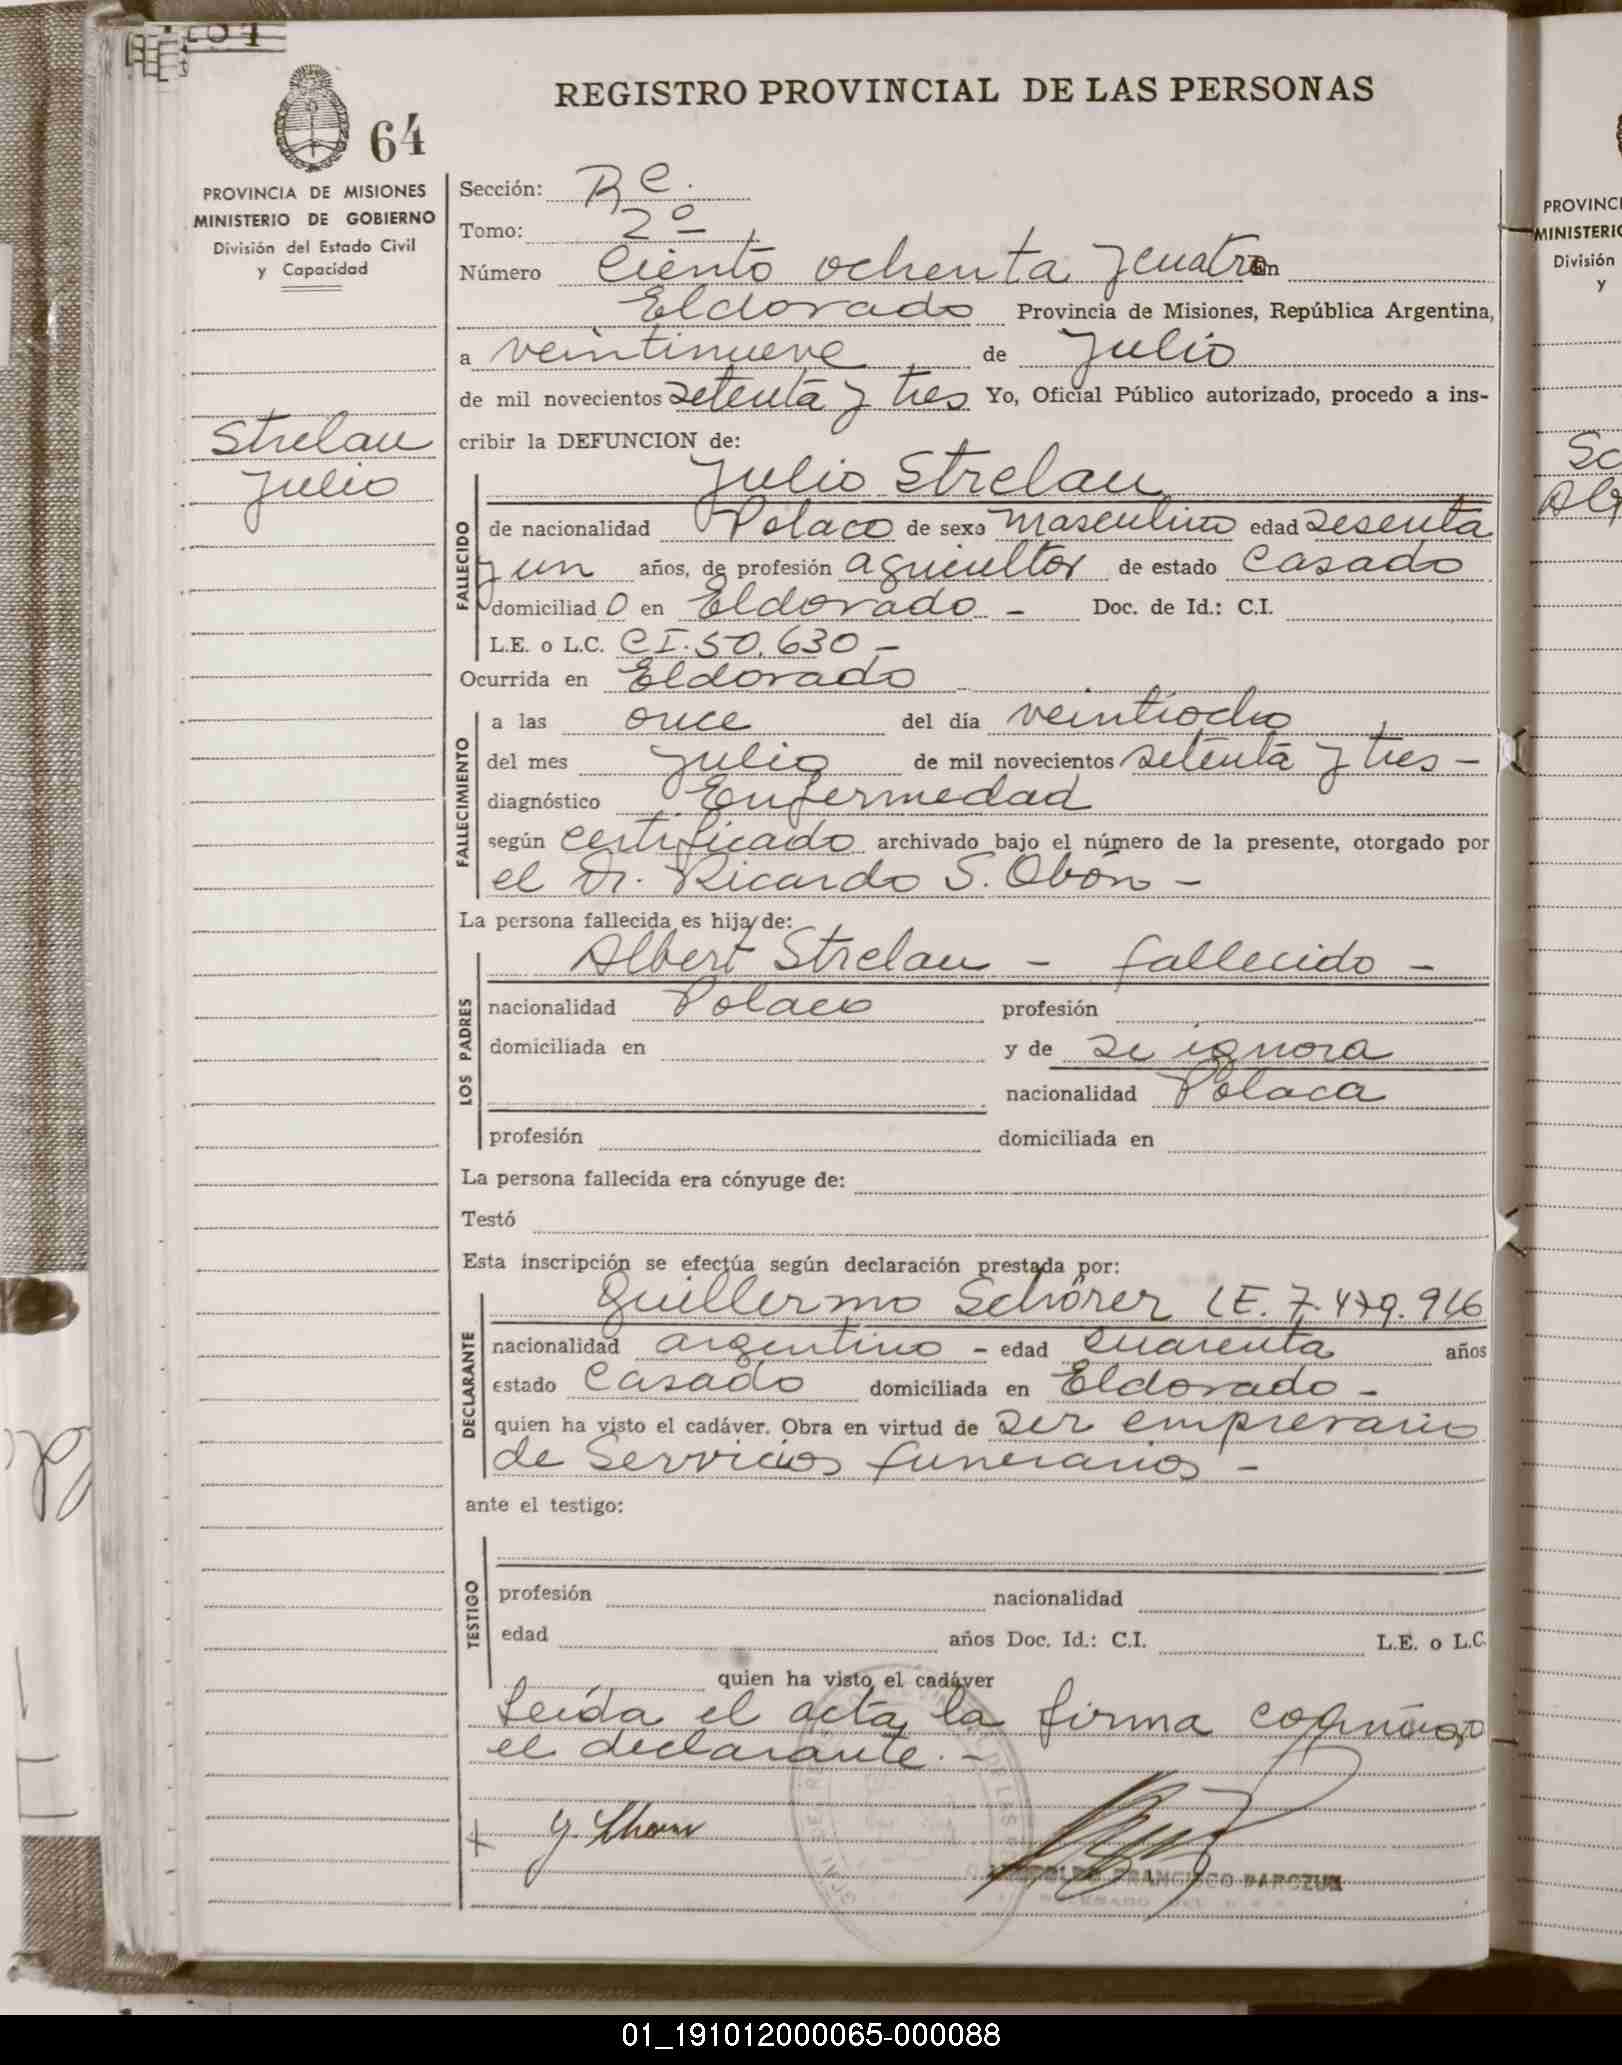 REGISTRO PROVINCIAL DE LAS PERSONAS
64
PROVINCIA DE MISIONES
MINISTERIO DE GOBIERNO
División del Estado Civil
y Capacidad
Strelau
Julio
Sección: R C.
Tomo: 2º
Número Ciento ochenta y cuatro En
Eldorado Provincia de Misiones, República Argentina,
a veintinueve de Julio
de mil novecientos setenta y tres Yo, Oficial Público autorizado, procedo a ins-
cribir la DEFUNCION de:
FALLECIDO
Julio Strelau
de nacionalidad Polaco de sexo masculino edad sesenta
y un años, de profesión agricultor de estado casado
domiciliado en Eldorado - Doc. de Id.: C.I.
L.E. o L.C. CI. 50.630 -
Ocurrida en Eldorado
FALLECIMIENTO
a las once del día veintiocho
del mes julio de mil novecientos setenta y tres -
diagnóstico Enfermedad
según certificado archivado bajo el número de la presente, otorgado por
el Dr. Ricardo S. Obón -
La persona fallecida es hija de:
LOS PADRES
Albert Strelau - fallecido -
nacionalidad Polaco profesión
domiciliada en y de se ignora
nacionalidad Polaca
profesión domiciliada en
La persona fallecida era cónyuge de:
Testó
Esta inscripción se efectúa según declaración prestada por:
DECLARANTE
Guillermo Schörer LE. 7.479.916
nacionalidad argentino - edad cuarenta años
estado Casado domiciliada en Eldorado -
quien ha visto el cadáver. Obra en virtud de ser empresario
de Servicios funerarios -
ante el testigo:
TESTIGO
profesión nacionalidad
edad años Doc. Id.: C.I. L.E. o L.C.
quien ha visto el cadáver
Leída el acta, la firma conmigo
el declarante. -
FRANCISCO
PROVINCI
MINISTERIO
División
y
01_191012000065-000088